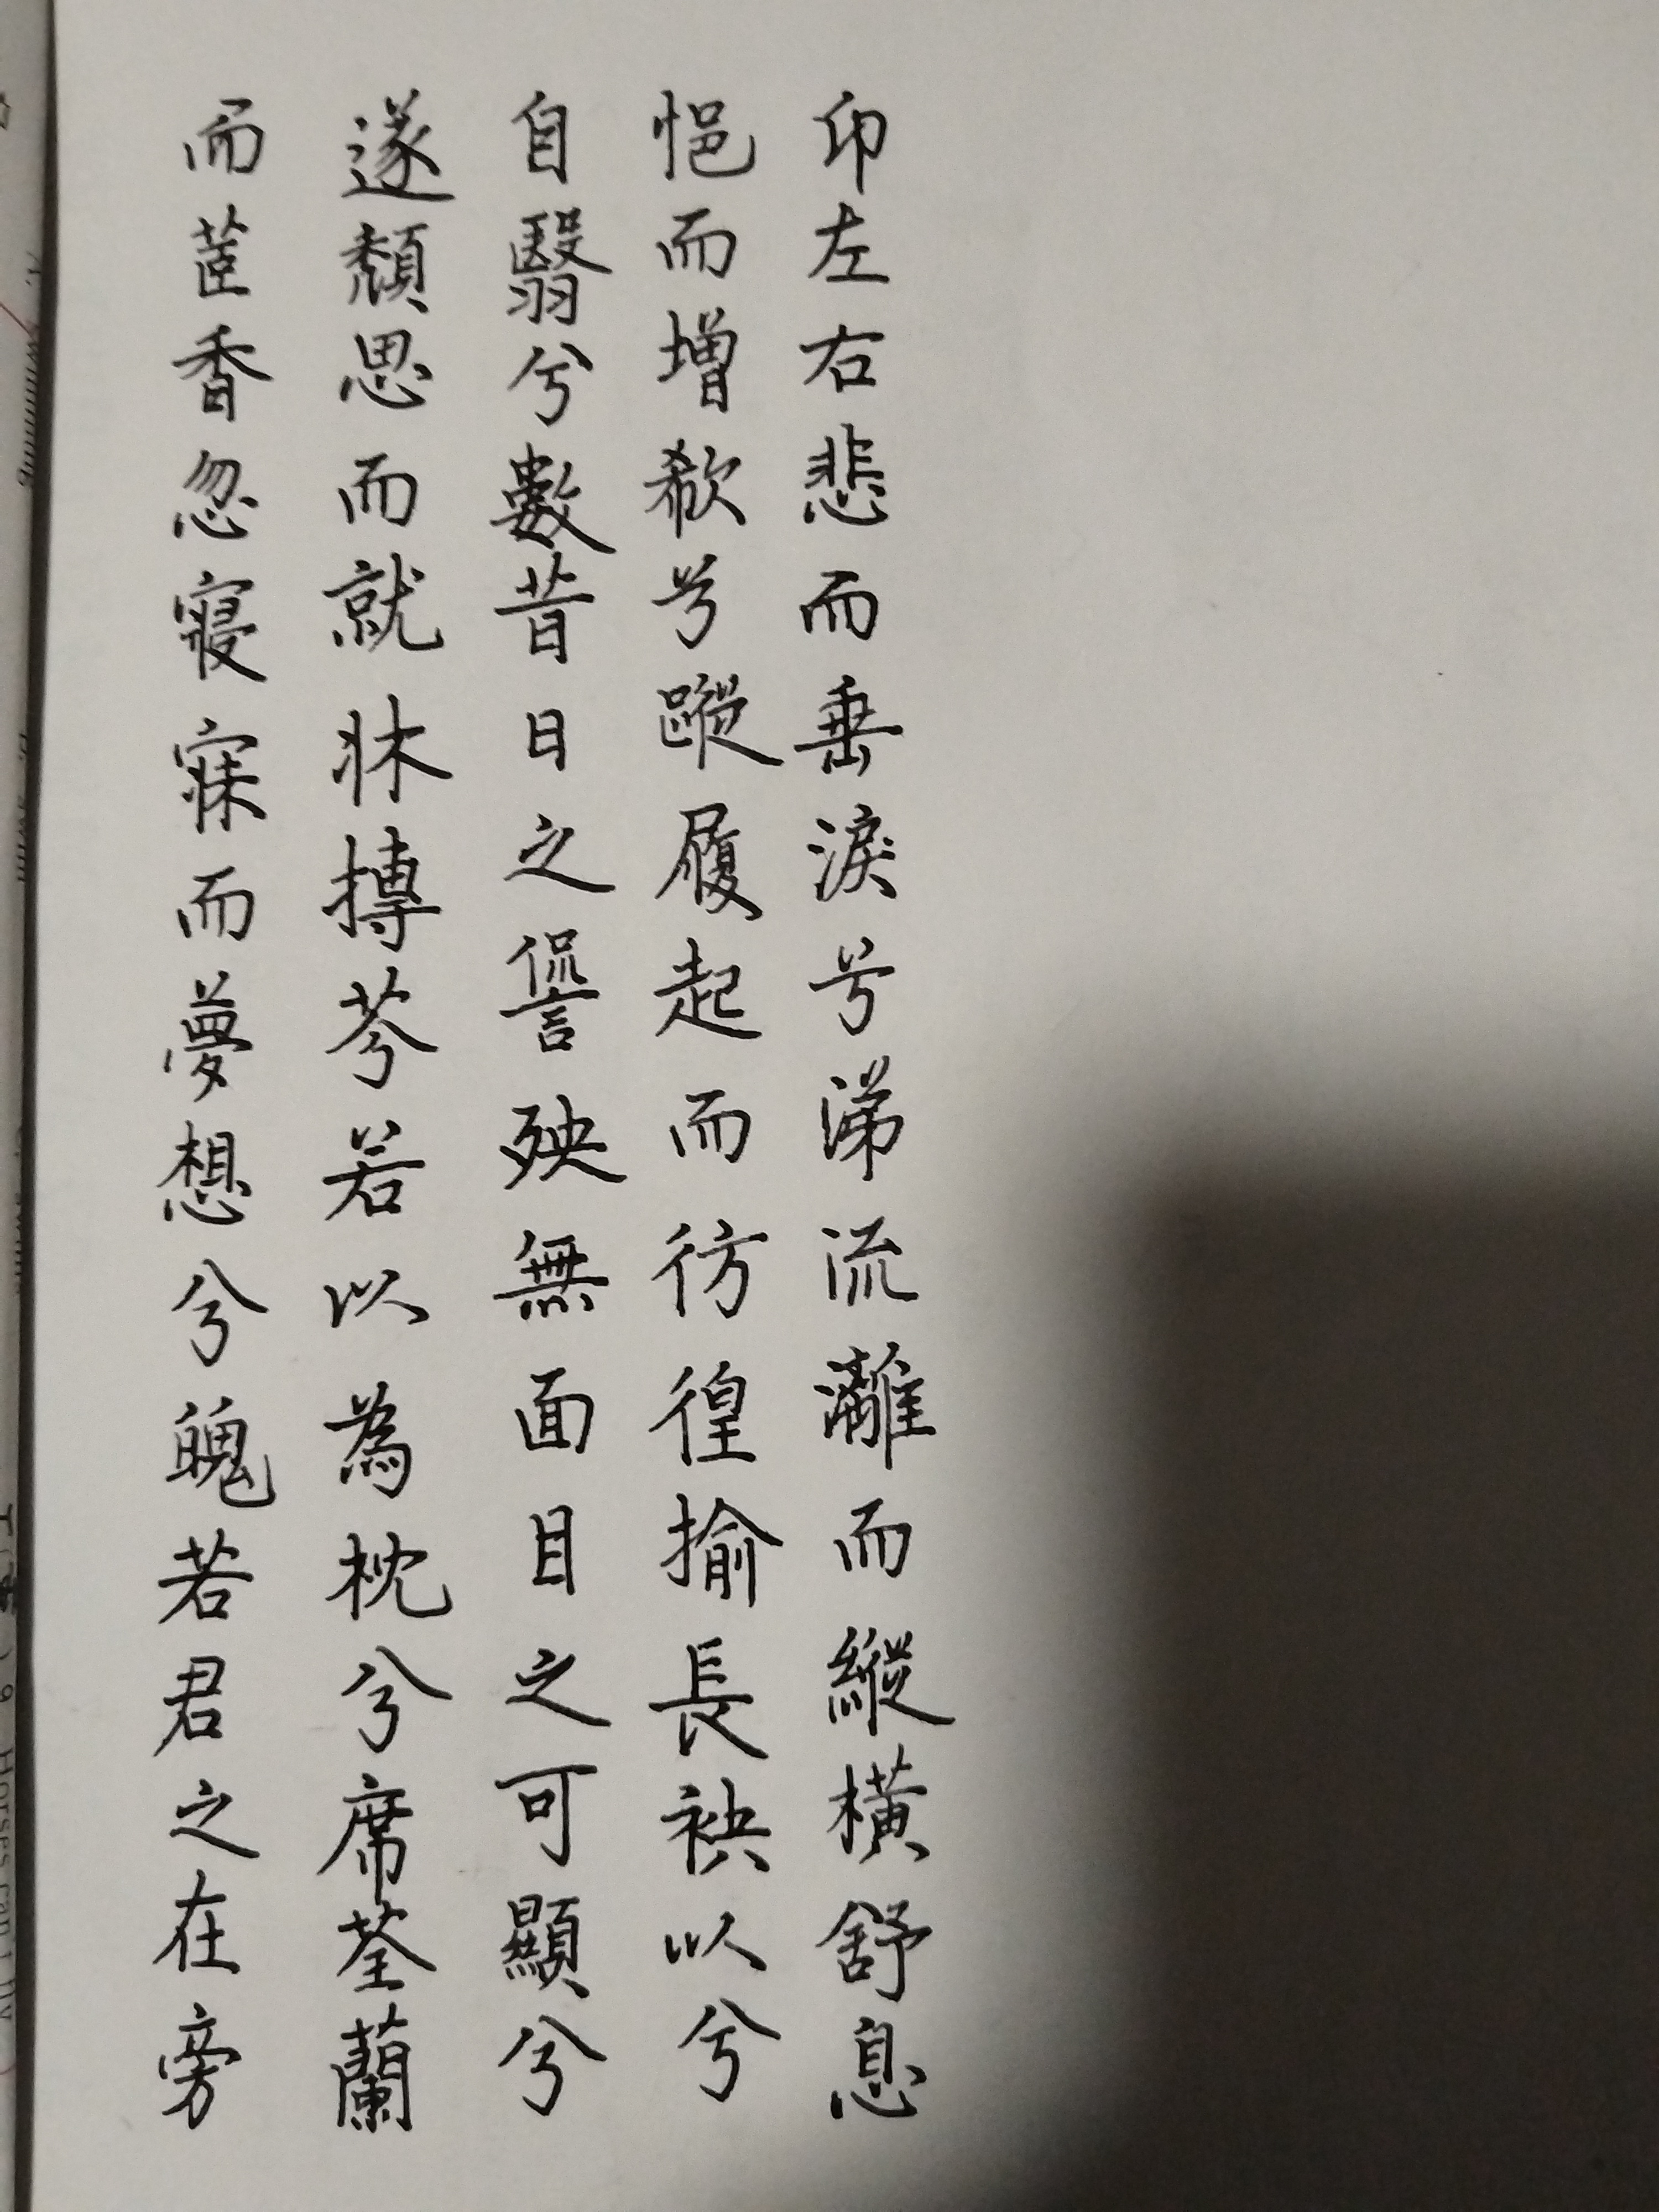 印左右悲而垂淚兮涕流灕而縱橫舒息
悒而增欷兮蹤履起而彷徨揄長袂以兮
自翳兮數昔日之諐殃無面目之可顯兮
遂頹思而就牀摶芬若以為枕兮席荃蘭
而茝香忽寢寐而夢想兮魄若君之在旁